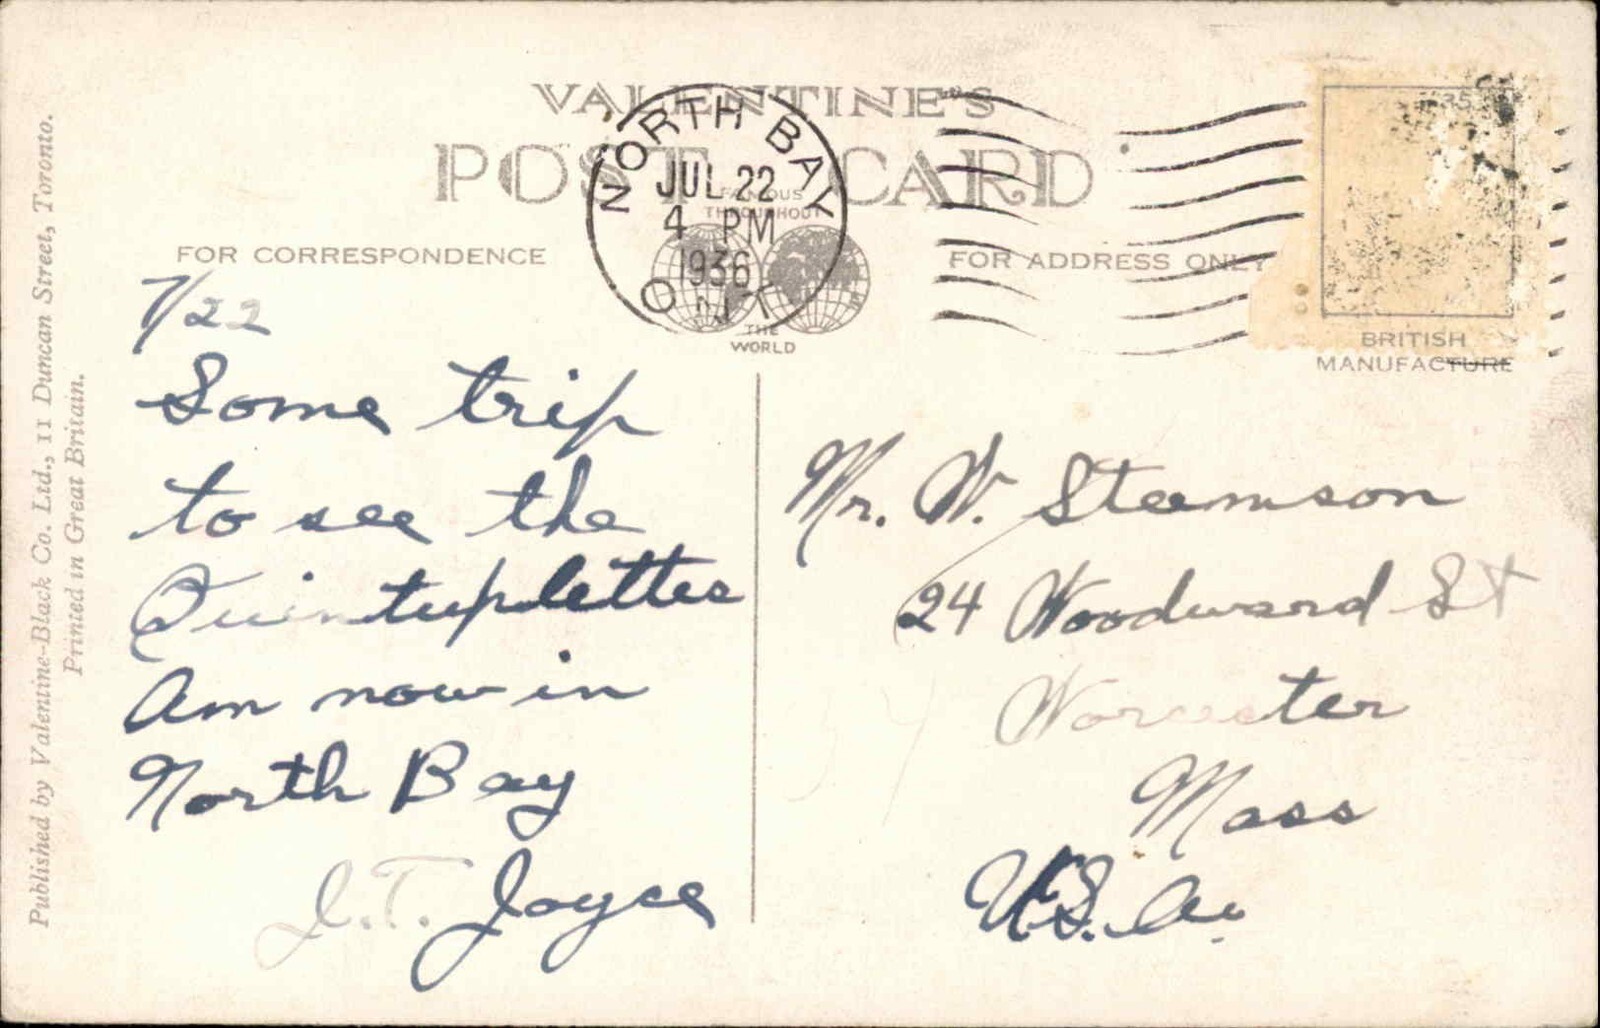 VALENTINE'S
POST CARD
FAMOUS
THROUGHOUT
THE
WORLD
NORTH BAY
JUL 22
4 PM
1936
ONT
FOR CORRESPONDENCE
FOR ADDRESS ONLY
BRITISH
MANUFACTURE
Published by Valentine-Black Co. Ltd., 11 Duncan Street, Toronto.
Printed in Great Britain.
7/22
Some trip
to see the
Quintuplettes
Am now in
North Bay
J.T. Joyce
Mr. W. Steemson
24 Woodward St
Worcester
Mass
U.S.A.